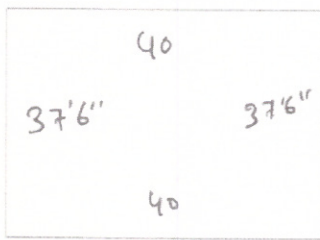 40
37'6" 37'6"
40